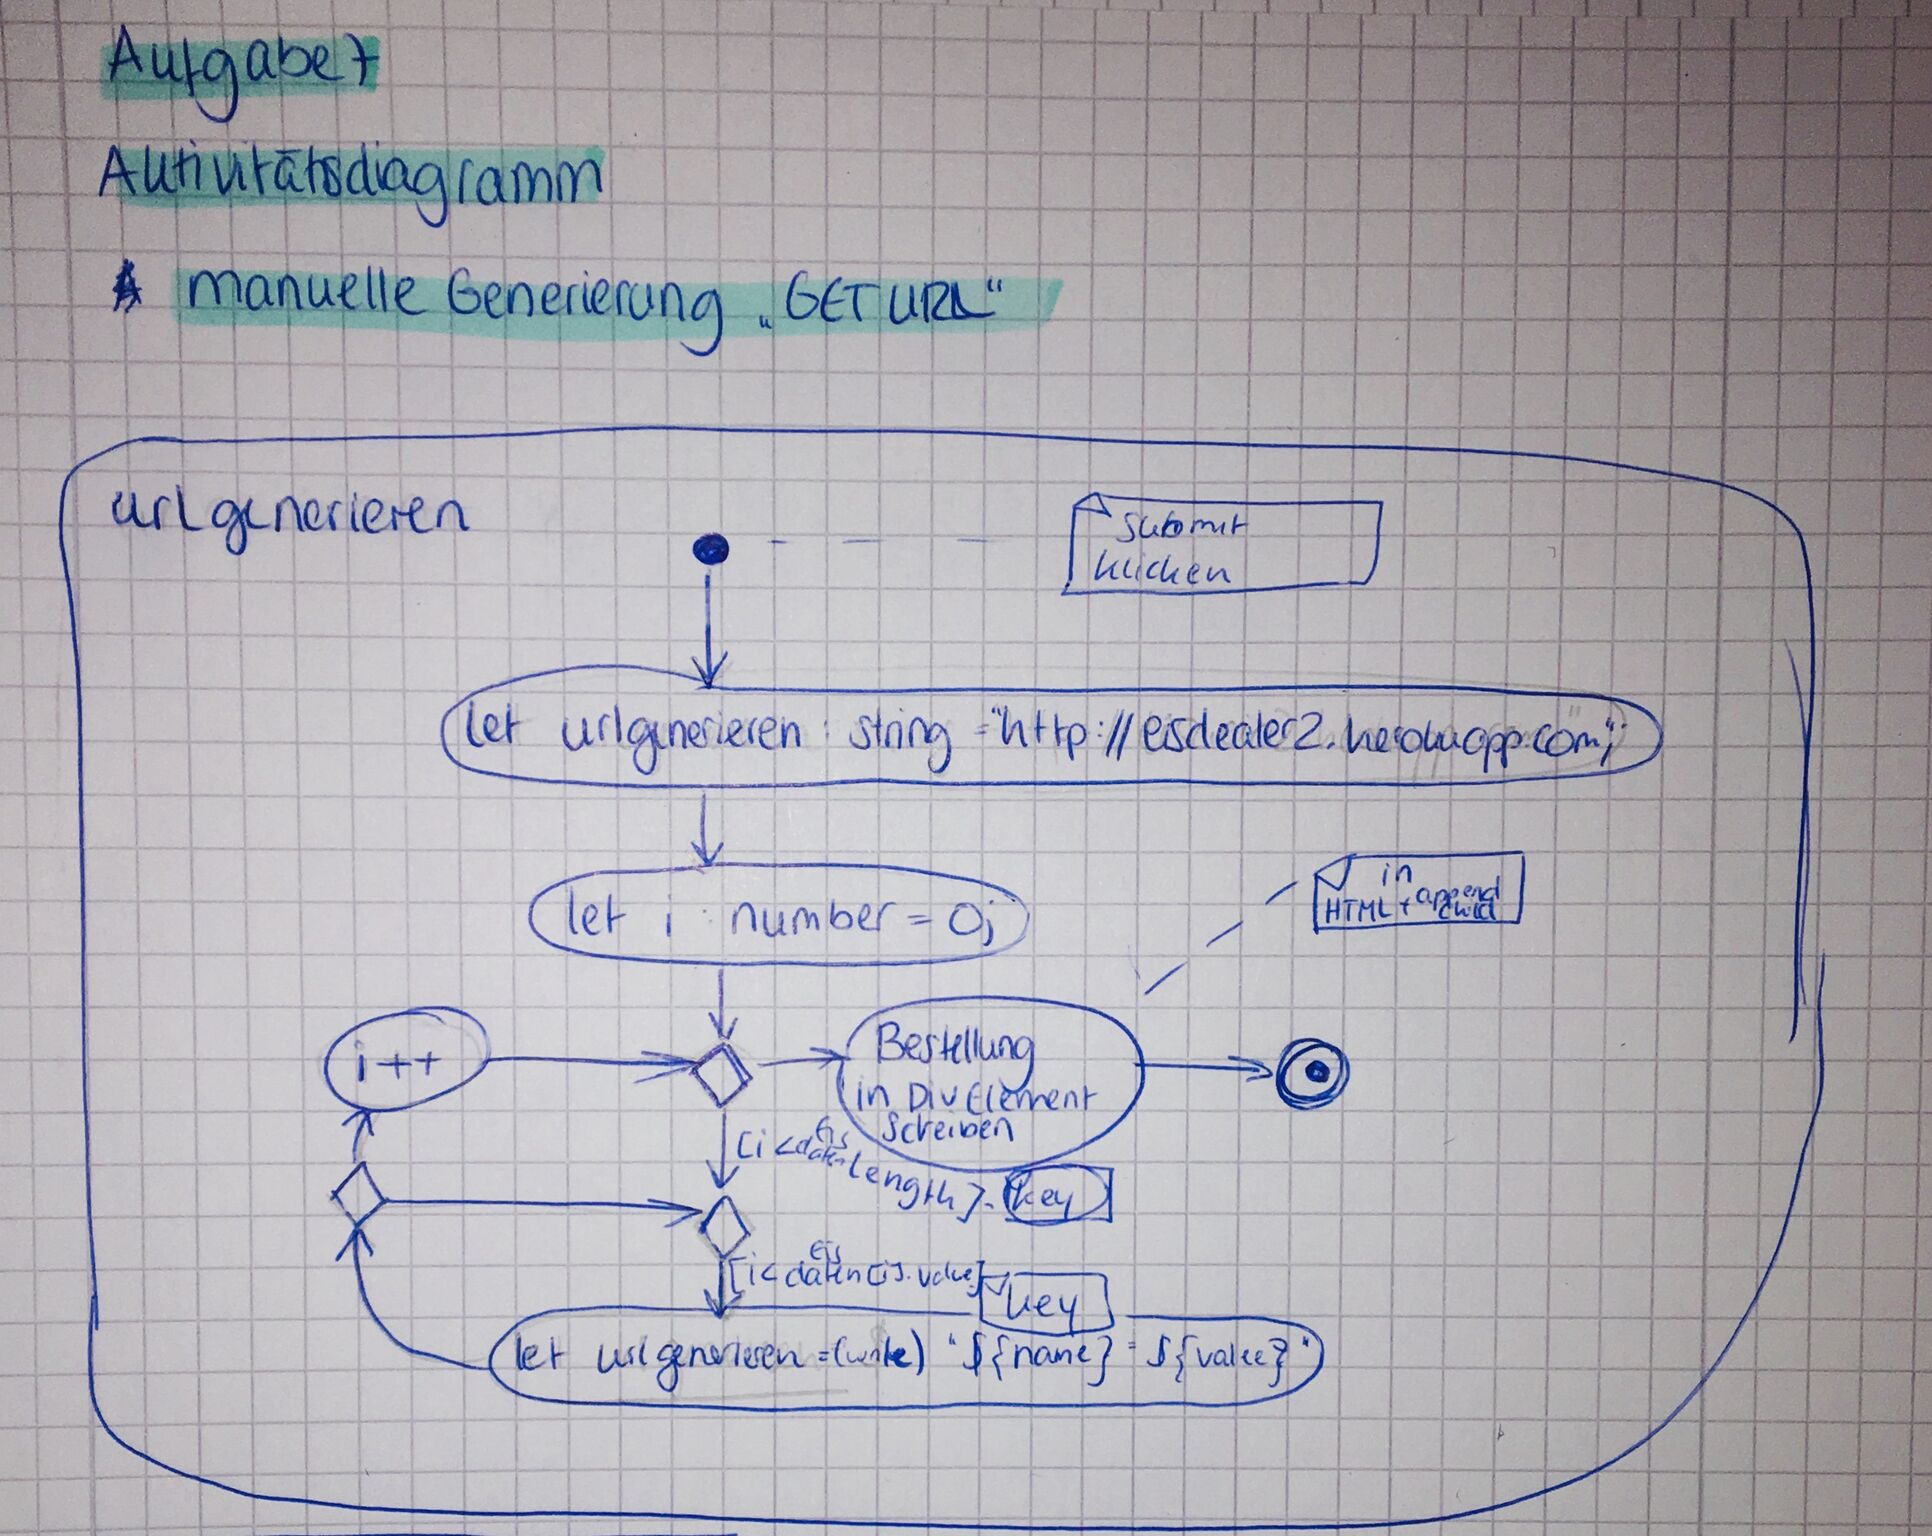 Aufgabe 7
Aktivitätsdiagramm
manuelle Generierung „GET URL“
urlgenerieren
submit
klicken
let urlgenerieren : string = "http://eisdealer2.herokuapp.com";
let i : number = 0;
in
HTML + append
child
i++
Bestellung
in DivElement
Screiben
[i < Eis
daten length]
key
[i < Eis
daten[i].value]
key
let urlgenerieren = "${name} = ${value}"